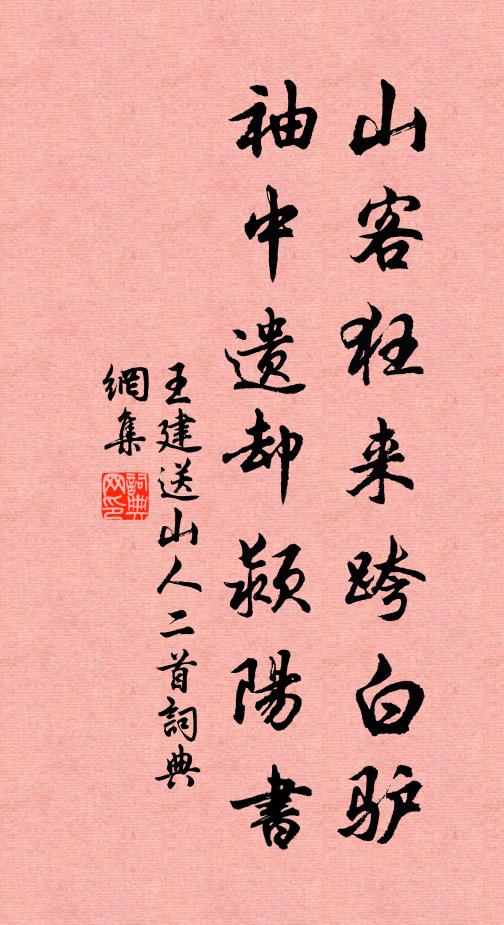 山客狂来跨白驴
袖中遗却颍陽書
王建送山人二首詞典
網集
詞典
网印